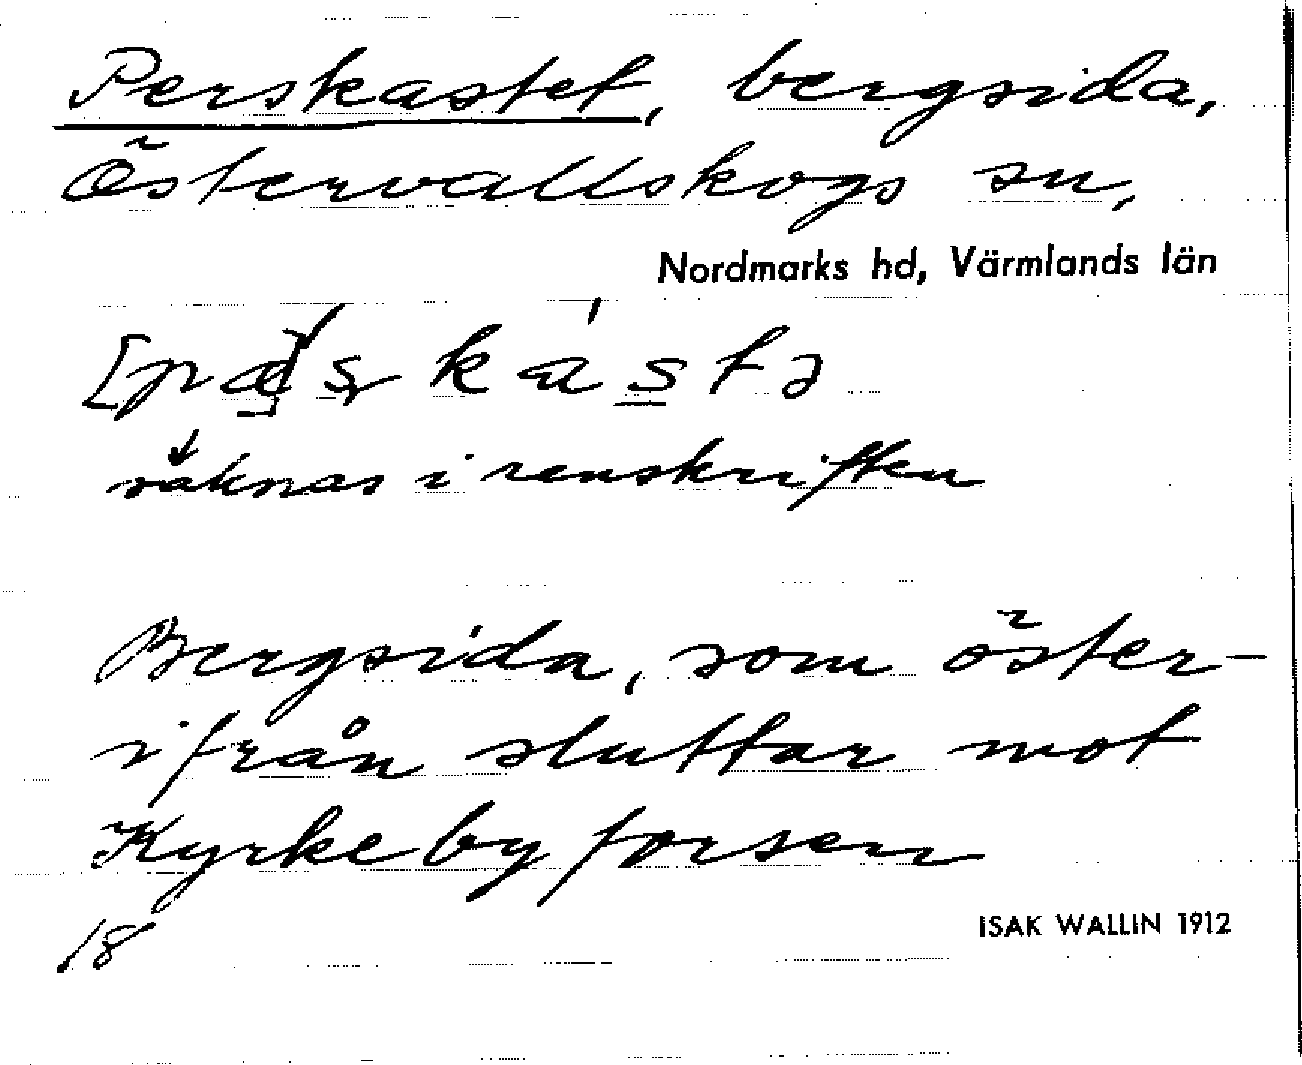 Perskastet, bergsida,
Östervallskogs sn,
Nordmarks hd, Värmlands län
räknas i renskriften
Bergsida, som öster-
ifrån sluttar mot
Kyrkebyforsen
18
ISAK WALLIN 1912